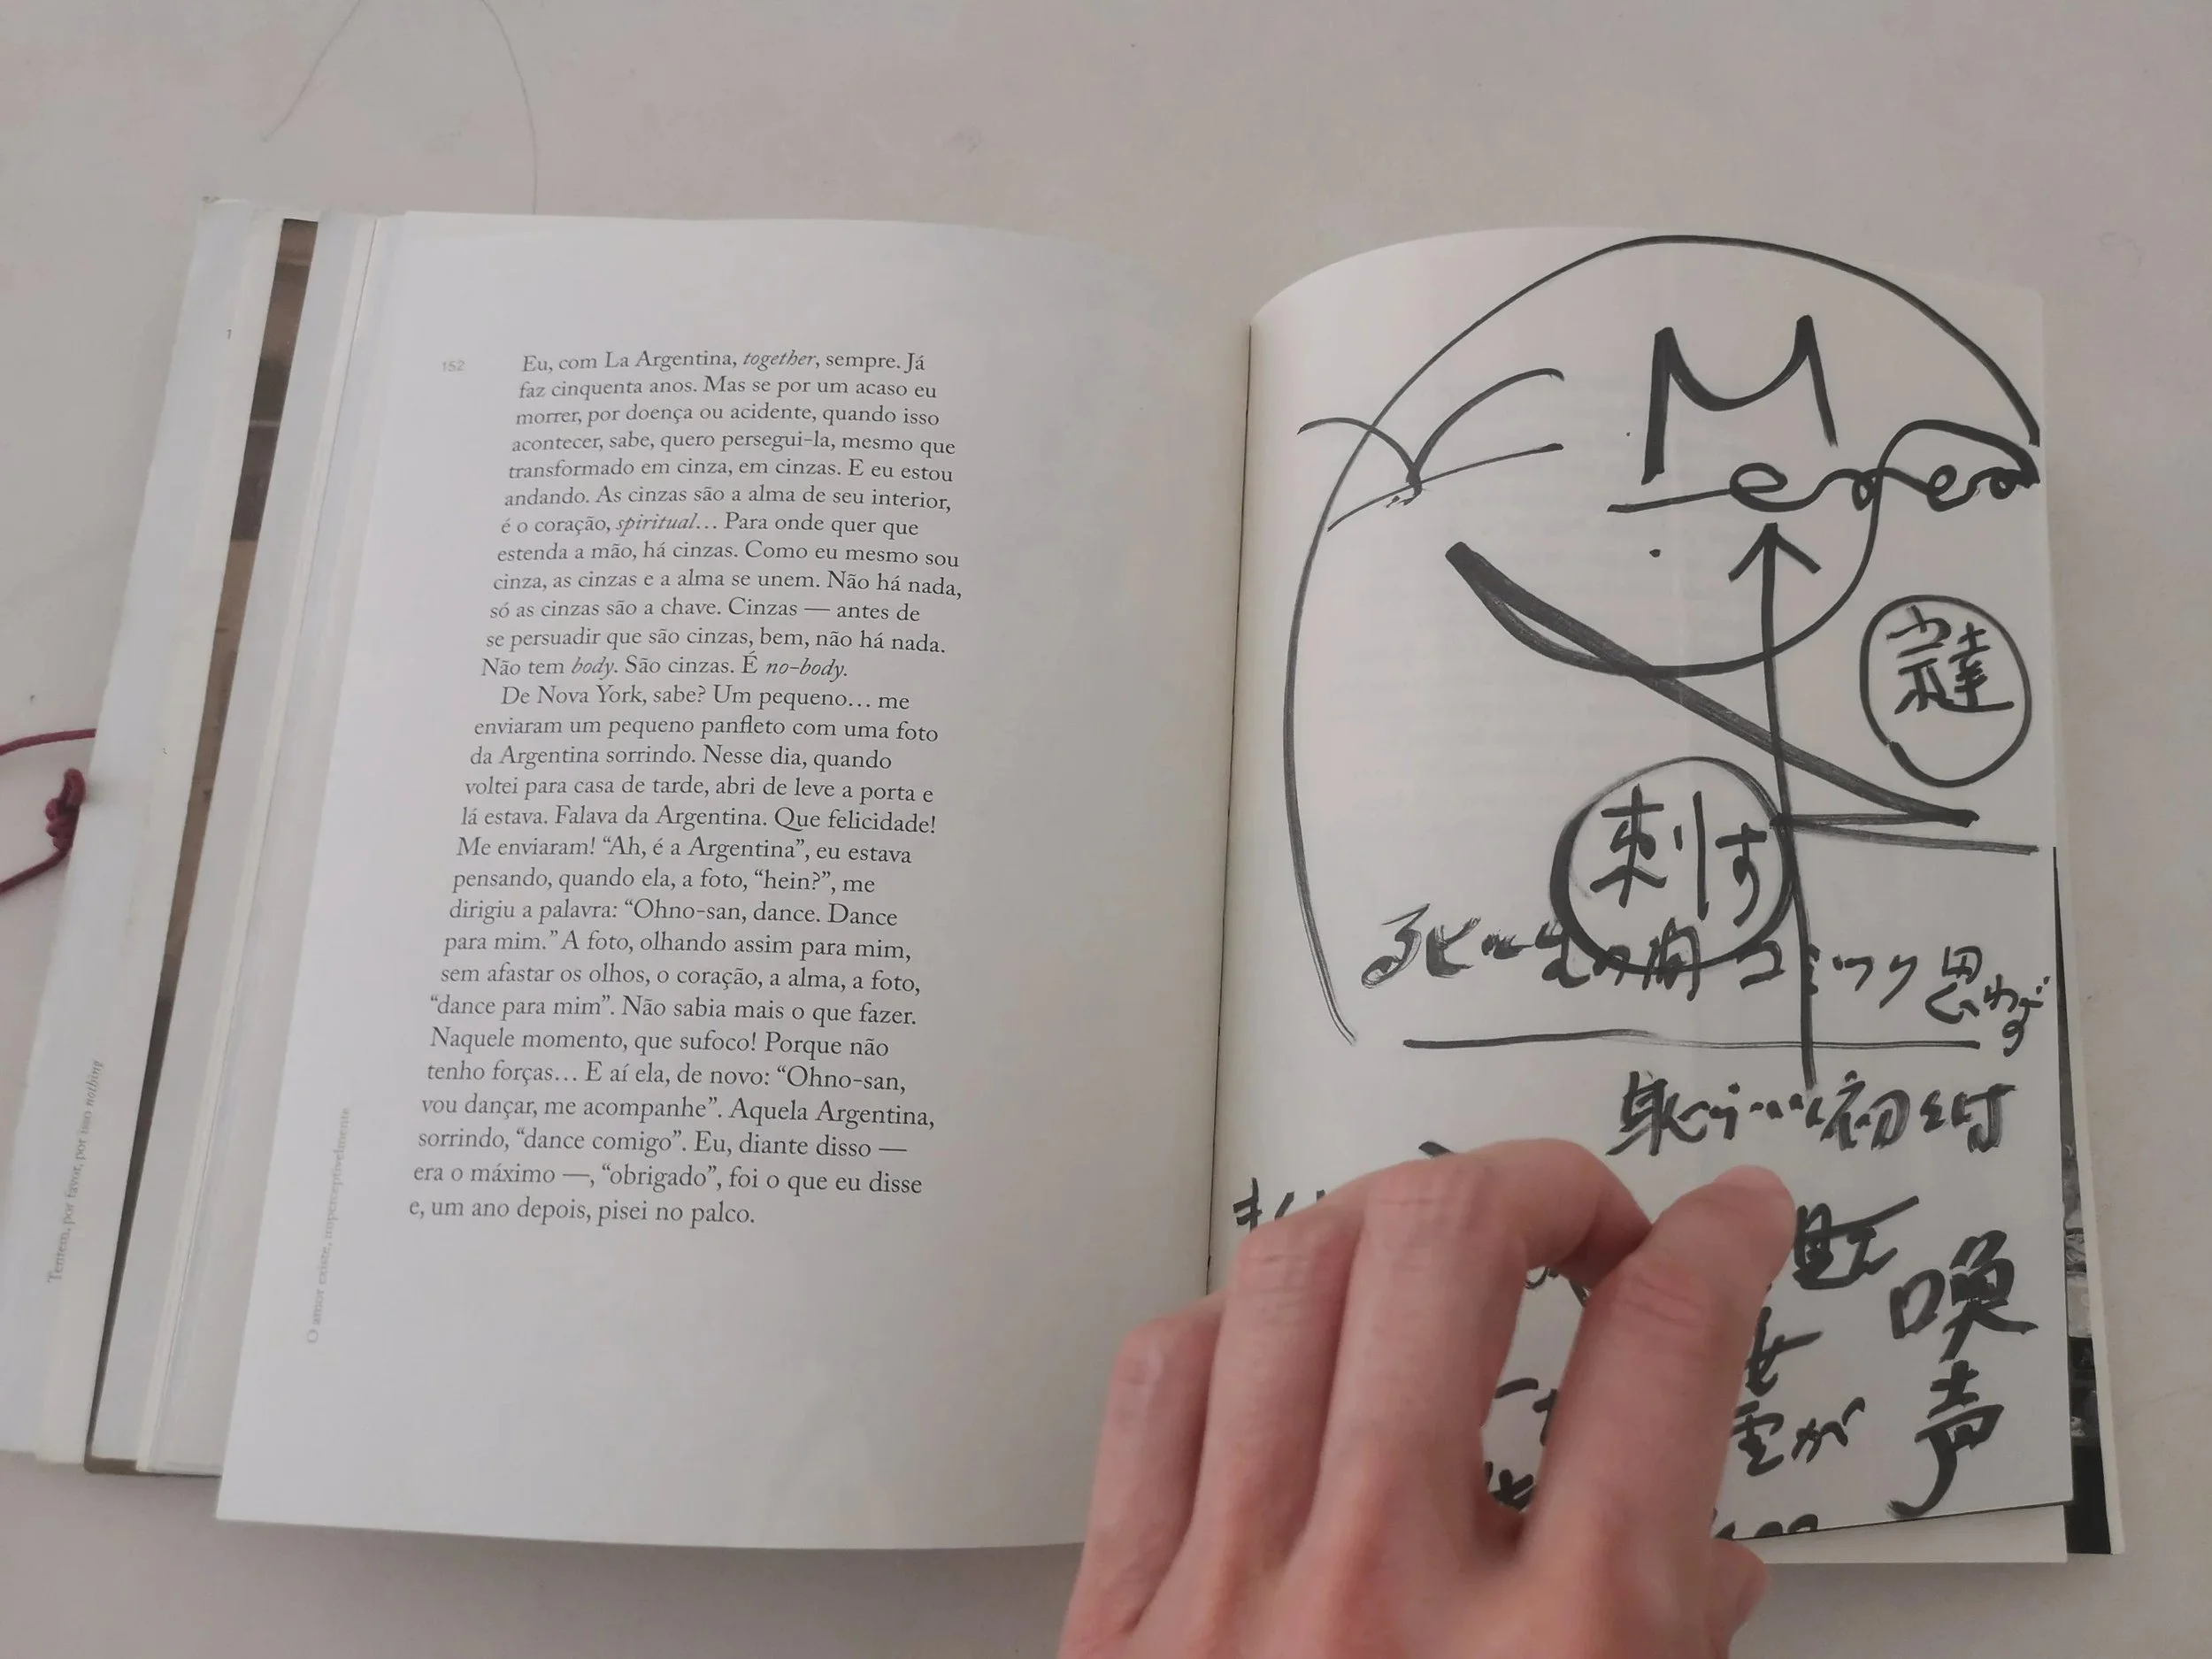 152
Eu, com La Argentina, together, sempre. Já
faz cinquenta anos. Mas se por um acaso eu
morrer, por doença ou acidente, quando isso
acontecer, sabe, quero persegui-la, mesmo que
transformado em cinza, em cinzas. E eu estou
andando. As cinzas são a alma de seu interior,
é o coração, spiritual… Para onde quer que
estenda a mão, há cinzas. Como eu mesmo sou
cinza, as cinzas e a alma se unem. Não há nada,
só as cinzas são a chave. Cinzas — antes de
se persuadir que são cinzas, bem, não há nada.
Não tem body. São cinzas. É no-body.
De Nova York, sabe? Um pequeno… me
enviaram um pequeno panfleto com uma foto
da Argentina sorrindo. Nesse dia, quando
voltei para casa de tarde, abri de leve a porta e
lá estava. Falava da Argentina. Que felicidade!
Me enviaram! “Ah, é a Argentina”, eu estava
pensando, quando ela, a foto, “hein?”, me
dirigiu a palavra: “Ohno-san, dance. Dance
para mim.” A foto, olhando assim para mim,
sem afastar os olhos, o coração, a alma, a foto,
“dance para mim”. Não sabia mais o que fazer.
Naquele momento, que sufoco! Porque não
tenho forças… E aí ela, de novo: “Ohno-san,
vou dançar, me acompanhe”. Aquela Argentina,
sorrindo, “dance comigo”. Eu, diante disso —
era o máximo —, “obrigado”, foi o que eu disse
e, um ano depois, pisei no palco.
O amor existe, imperceptivelmente
Tentem, por favor, por isso nothing
1
M
刺す
死と生の間
思わず
喚
声